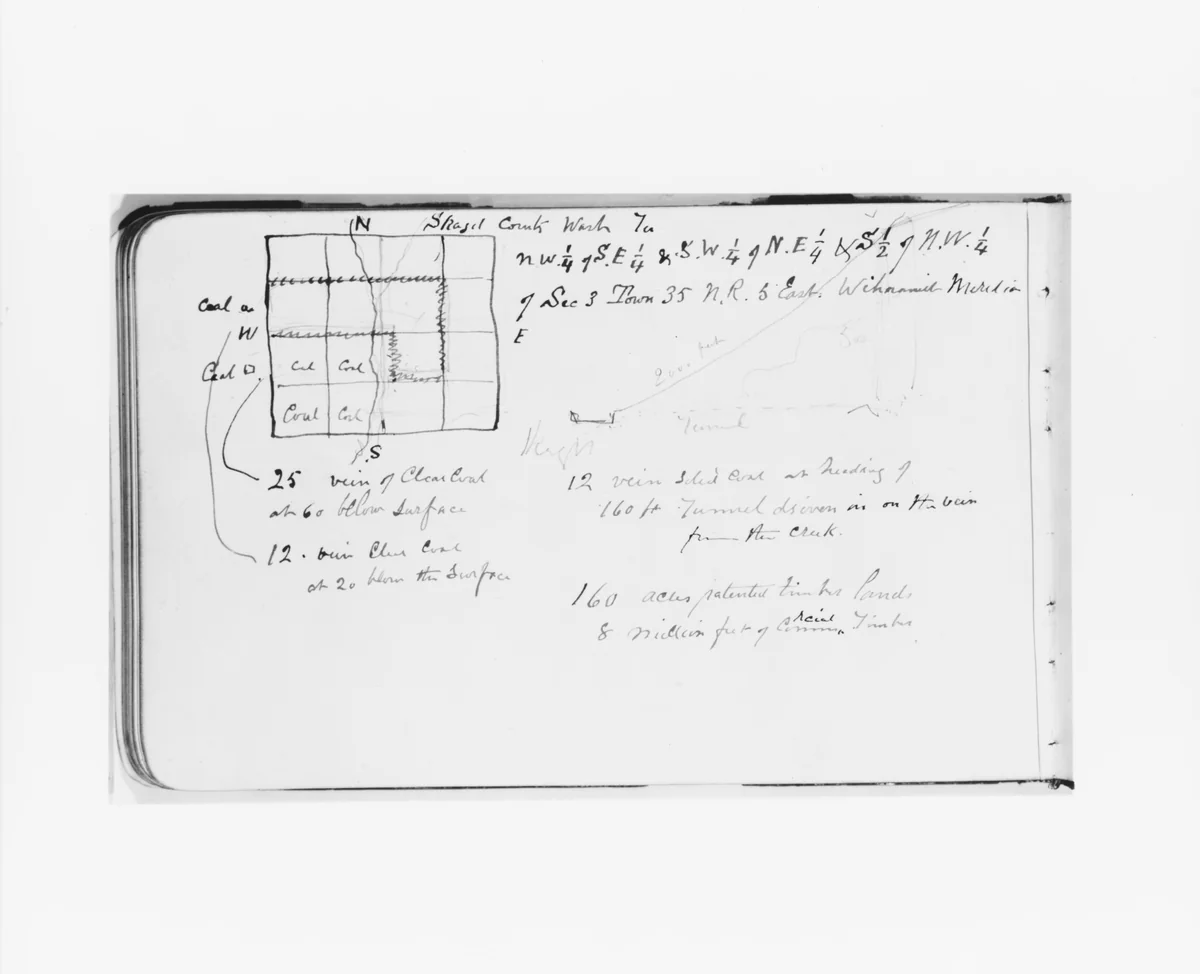 N
Skagit County Wash Ter
N.W. 1/4 of S.E 1/4 & S.W. 1/4 of N.E 1/4 & S 1/2 of N.W. 1/4
of Sec 3 Town 35 N.R. 5 East.
Coal
W
E
Coal
Coal Coal
Coal Coal
2000 feet
Tunnel
S
25 vein of Clear Coal
at 60 below surface
12 . vein Clear Coal
at 20 below the Surface
12 vein Solid Coal at heading of
160 ft Tunnel driven in on the vein
from the creek.
160 acres patented timber Lands
8 million feet of Timber